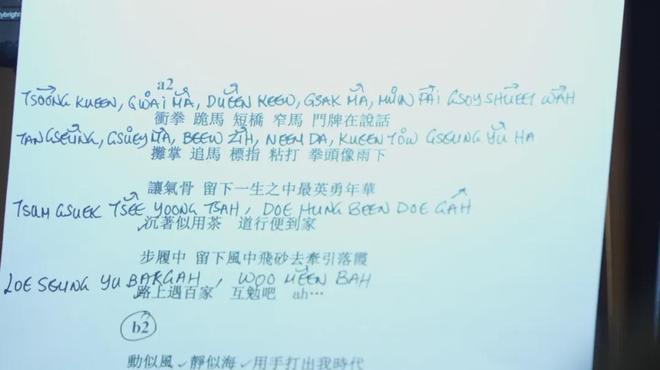 a2
TSOONG KUEEN, GWAI MA, DUEEN KEEW, GSAK MA, MUIN PAI GSOY SHUEET WAH
衝拳 跪馬 短橋 窄馬 門牌在說話
TAN GSEUNG, GSUEY MA, BEEW ZIH, NEEM DA, KUEEN TOW GSEUNG YU HA
攤掌 追馬 標指 粘打 拳頭像雨下
讓氣骨 留下一生之中最英勇年華
TSUM GSUEK TSEE YOONG TSAH, DOE HUNG BEEN DOE GAH
沉著似用茶 道行便到家
步履中 留下風中飛砂去牽引落霞
LOE SEUNG YU BAKGAH, WOO MEEN BAH
路上遇百家 互勉吧 ah…
b2
動似風✓靜似海✓用手打出我時代